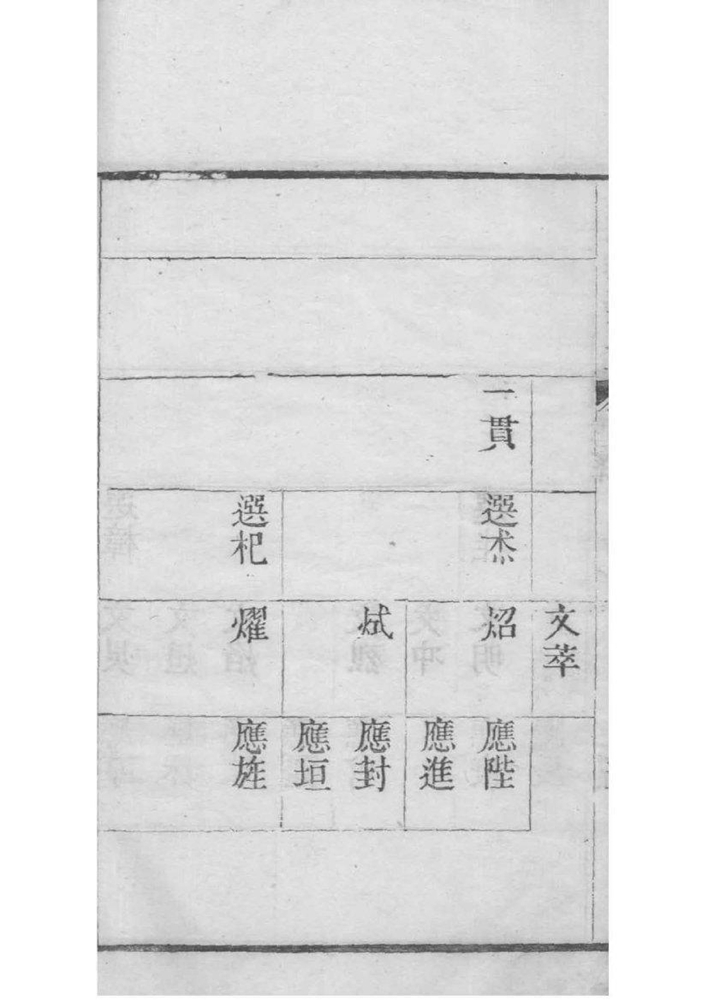 一貫
選杰 選杞
文萃 炤 烒 燿
應陛 應進 應封 應垣 應旌